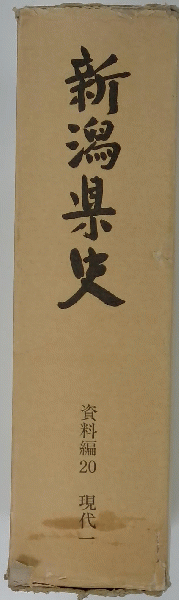 新潟県史
資料編20 現代一